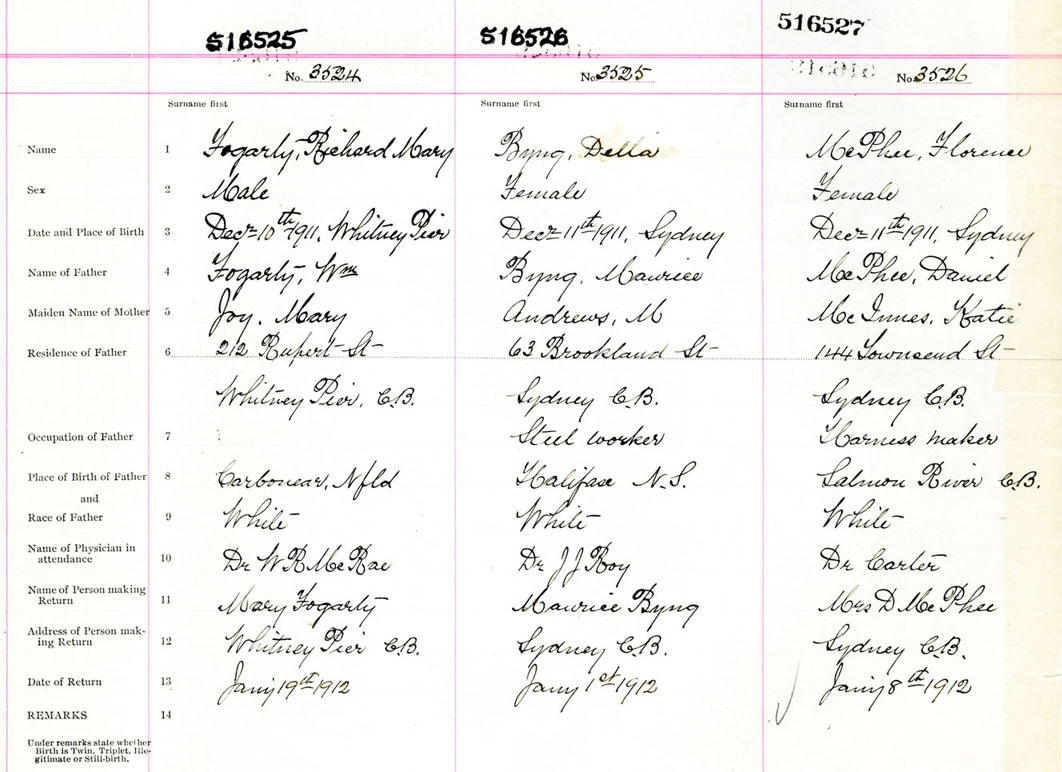 516525 516526 516527
No. 3524 No. 3525 No. 3526
Surname first Surname first Surname first
Name 1 Fogarty, Richard Mary Byng, Della McPhee, Florence
Sex 2 Male Female Female
Date and Place of Birth 3 Decr 10th 1911, Whitney Pier Decr 11th 1911, Sydney Decr 11th 1911, Sydney
Name of Father 4 Fogarty, Wm Byng, Maurice McPhee, Daniel
Maiden Name of Mother 5 Joy, Mary Andrews, M McInnes, Katie
Residence of Father 6 212 Rupert St 63 Brookland St 144 Townsend St
Whitney Pier, C.B. Sydney C.B. Sydney C.B.
Occupation of Father 7 Steel worker Harness maker
Place of Birth of Father 8 Carbonear, Nfld Halifax N.S. Salmon River C.B.
and
Race of Father 9 White White White
Name of Physician in
attendance 10 Dr W R McRae Dr J J Roy Dr Carter
Name of Person making
Return 11 Mary Fogarty Maurice Byng Mrs D McPhee
Address of Person mak-
ing Return 12 Whitney Pier C.B. Sydney C.B. Sydney C.B.
Date of Return 13 Jany 19th 1912 Jany 1st 1912 Jany 8th 1912
REMARKS 14
Under remarks state whether
Birth is Twin, Triplet, Ille-
gitimate or Still-birth.